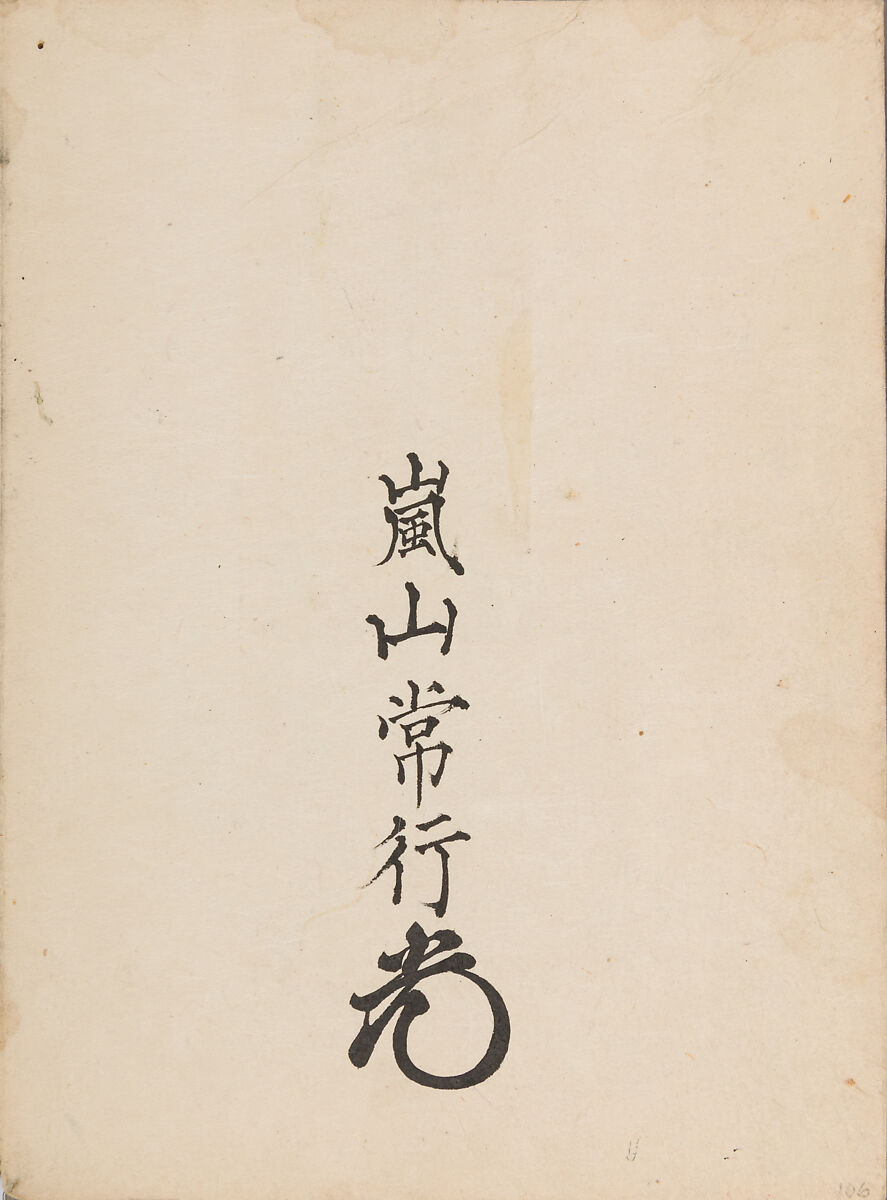 嵐山常行
106